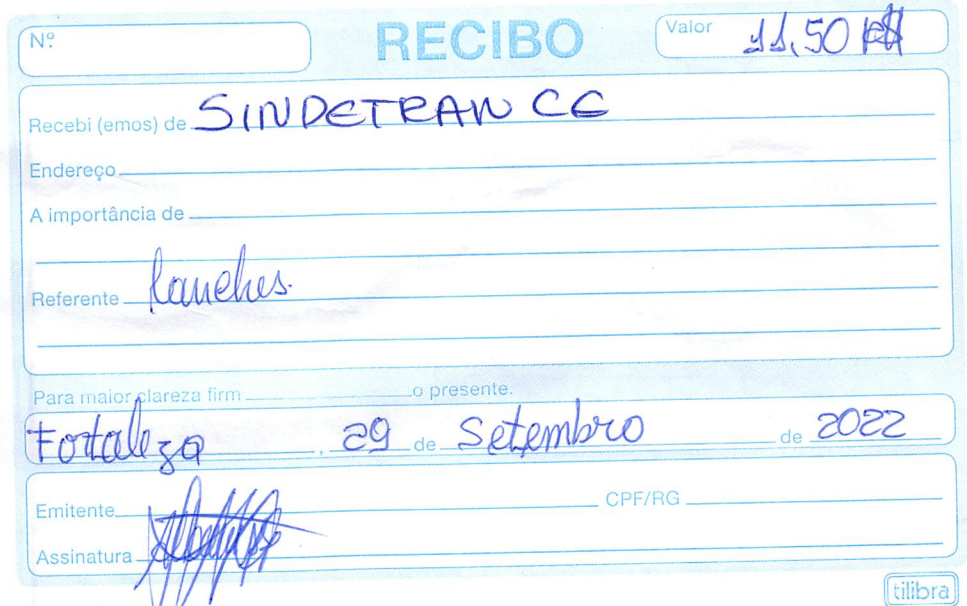 Nº RECIBO Valor 11,50 R$
Recebi (emos) de SINDETRAN CE
Endereço
A importância de
Referente lanches.
Para maior clareza firm o presente.
Fortaleza, 29 de Setembro de 2022
Emitente CPF/RG
Assinatura
tilibra